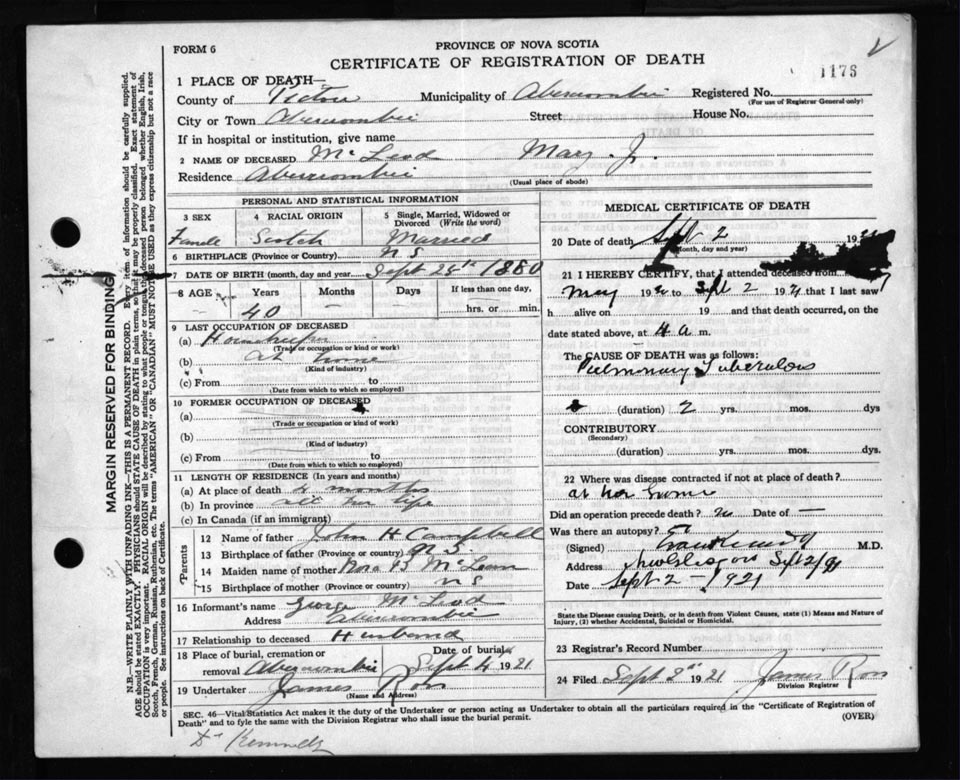 FORM 6
PROVINCE OF NOVA SCOTIA
CERTIFICATE OF REGISTRATION OF DEATH
1176
1 PLACE OF DEATH—
County of Pictou Municipality of Abercrombie Registered No.
(For use of Registrar General only)
City or Town Abercrombie Street House No.
If in hospital or institution, give name
2 NAME OF DECEASED McLeod Mary. J.
Residence Abercrombie
(Usual place of abode)
PERSONAL AND STATISTICAL INFORMATION
3 SEX 4 RACIAL ORIGIN 5 Single, Married, Widowed or Divorced (Write the word)
Female Scotch Married
6 BIRTHPLACE (Province or Country) N S
7 DATE OF BIRTH (month, day and year) Sept 28th 1880
8 AGE Years Months Days If less than one day,
40 hrs. or min.
9 LAST OCCUPATION OF DECEASED
(a) Housekeeper
(Trade or occupation or kind or work)
(b) at home
(Kind of industry)
(c) From to
(Date from which to which so employed)
10 FORMER OCCUPATION OF DECEASED
(a)
(Trade or occupation or kind of work)
(b)
(Kind of industry)
(c) From to
(Date from which to which so employed)
11 LENGTH OF RESIDENCE (In years and months)
(a) At place of death months
(b) In province all her life
(c) In Canada (if an immigrant)
Parents
12 Name of father John H Campbell
13 Birthplace of father (Province or country) N. S.
14 Maiden name of mother Rose B McLean
15 Birthplace of mother (Province or country) N S
16 Informant's name George McLeod
Address Abercrombie
17 Relationship to deceased Husband
18 Place of burial, cremation or removal Abercrombie Date of burial Sept 4 1921
19 Undertaker James Ross
(Name and Address)
MEDICAL CERTIFICATE OF DEATH
20 Date of death Sept 2 19
(Month, day and year)
21 I HEREBY CERTIFY, that I attended deceased from
May 19 to Sept 2 1921 that I last saw
h alive on 19 and that death occurred, on
date stated above, at 4 a m.
The CAUSE OF DEATH was as follows:
Pulmonary Tuberculous
(duration) 2 yrs. mos. dys
CONTRIBUTORY
(Secondary)
(duration) yrs. mos. dys.
22 Where was disease contracted if not at place of death?
at her home
Did an operation precede death? no Date of —
Was there an autopsy?
(Signed) M.D.
Address Sept 2/21
Date Sept 2 — 1921
State the Disease causing Death, or in death from Violent Causes, state (1) Means and Nature of
Injury, (2) whether Accidental, Suicidal or Homicidal.
23 Registrar's Record Number
24 Filed Sept 3rd 1921 James Ross
Division Registrar
SEC. 46—Vital Statistics Act makes it the duty of the Undertaker or person acting as Undertaker to obtain all the particulars required in the "Certificate of Registration of
Death" and to fyle the same with the Division Registrar who shall issue the burial permit.
(OVER)
Dr Kennedy
MARGIN RESERVED FOR BINDING
N.B.—WRITE PLAINLY WITH UNFADING INK—THIS IS A PERMANENT RECORD. Every item of information should be carefully supplied.
AGE should be stated EXACTLY. PHYSICIANS should STATE CAUSE OF DEATH in plain terms, so that it may be properly classified. Exact statement of
OCCUPATION is very important. RACIAL ORIGIN will be described by stating to what people or tongue the deceased person belonged whether English, Irish,
Scotch, French, German, Russian, Ruthenian, etc. The terms "AMERICAN" or "CANADIAN" MUST NOT BE USED as they express citizenship but not a race
or people. See instructions on back of Certificate.